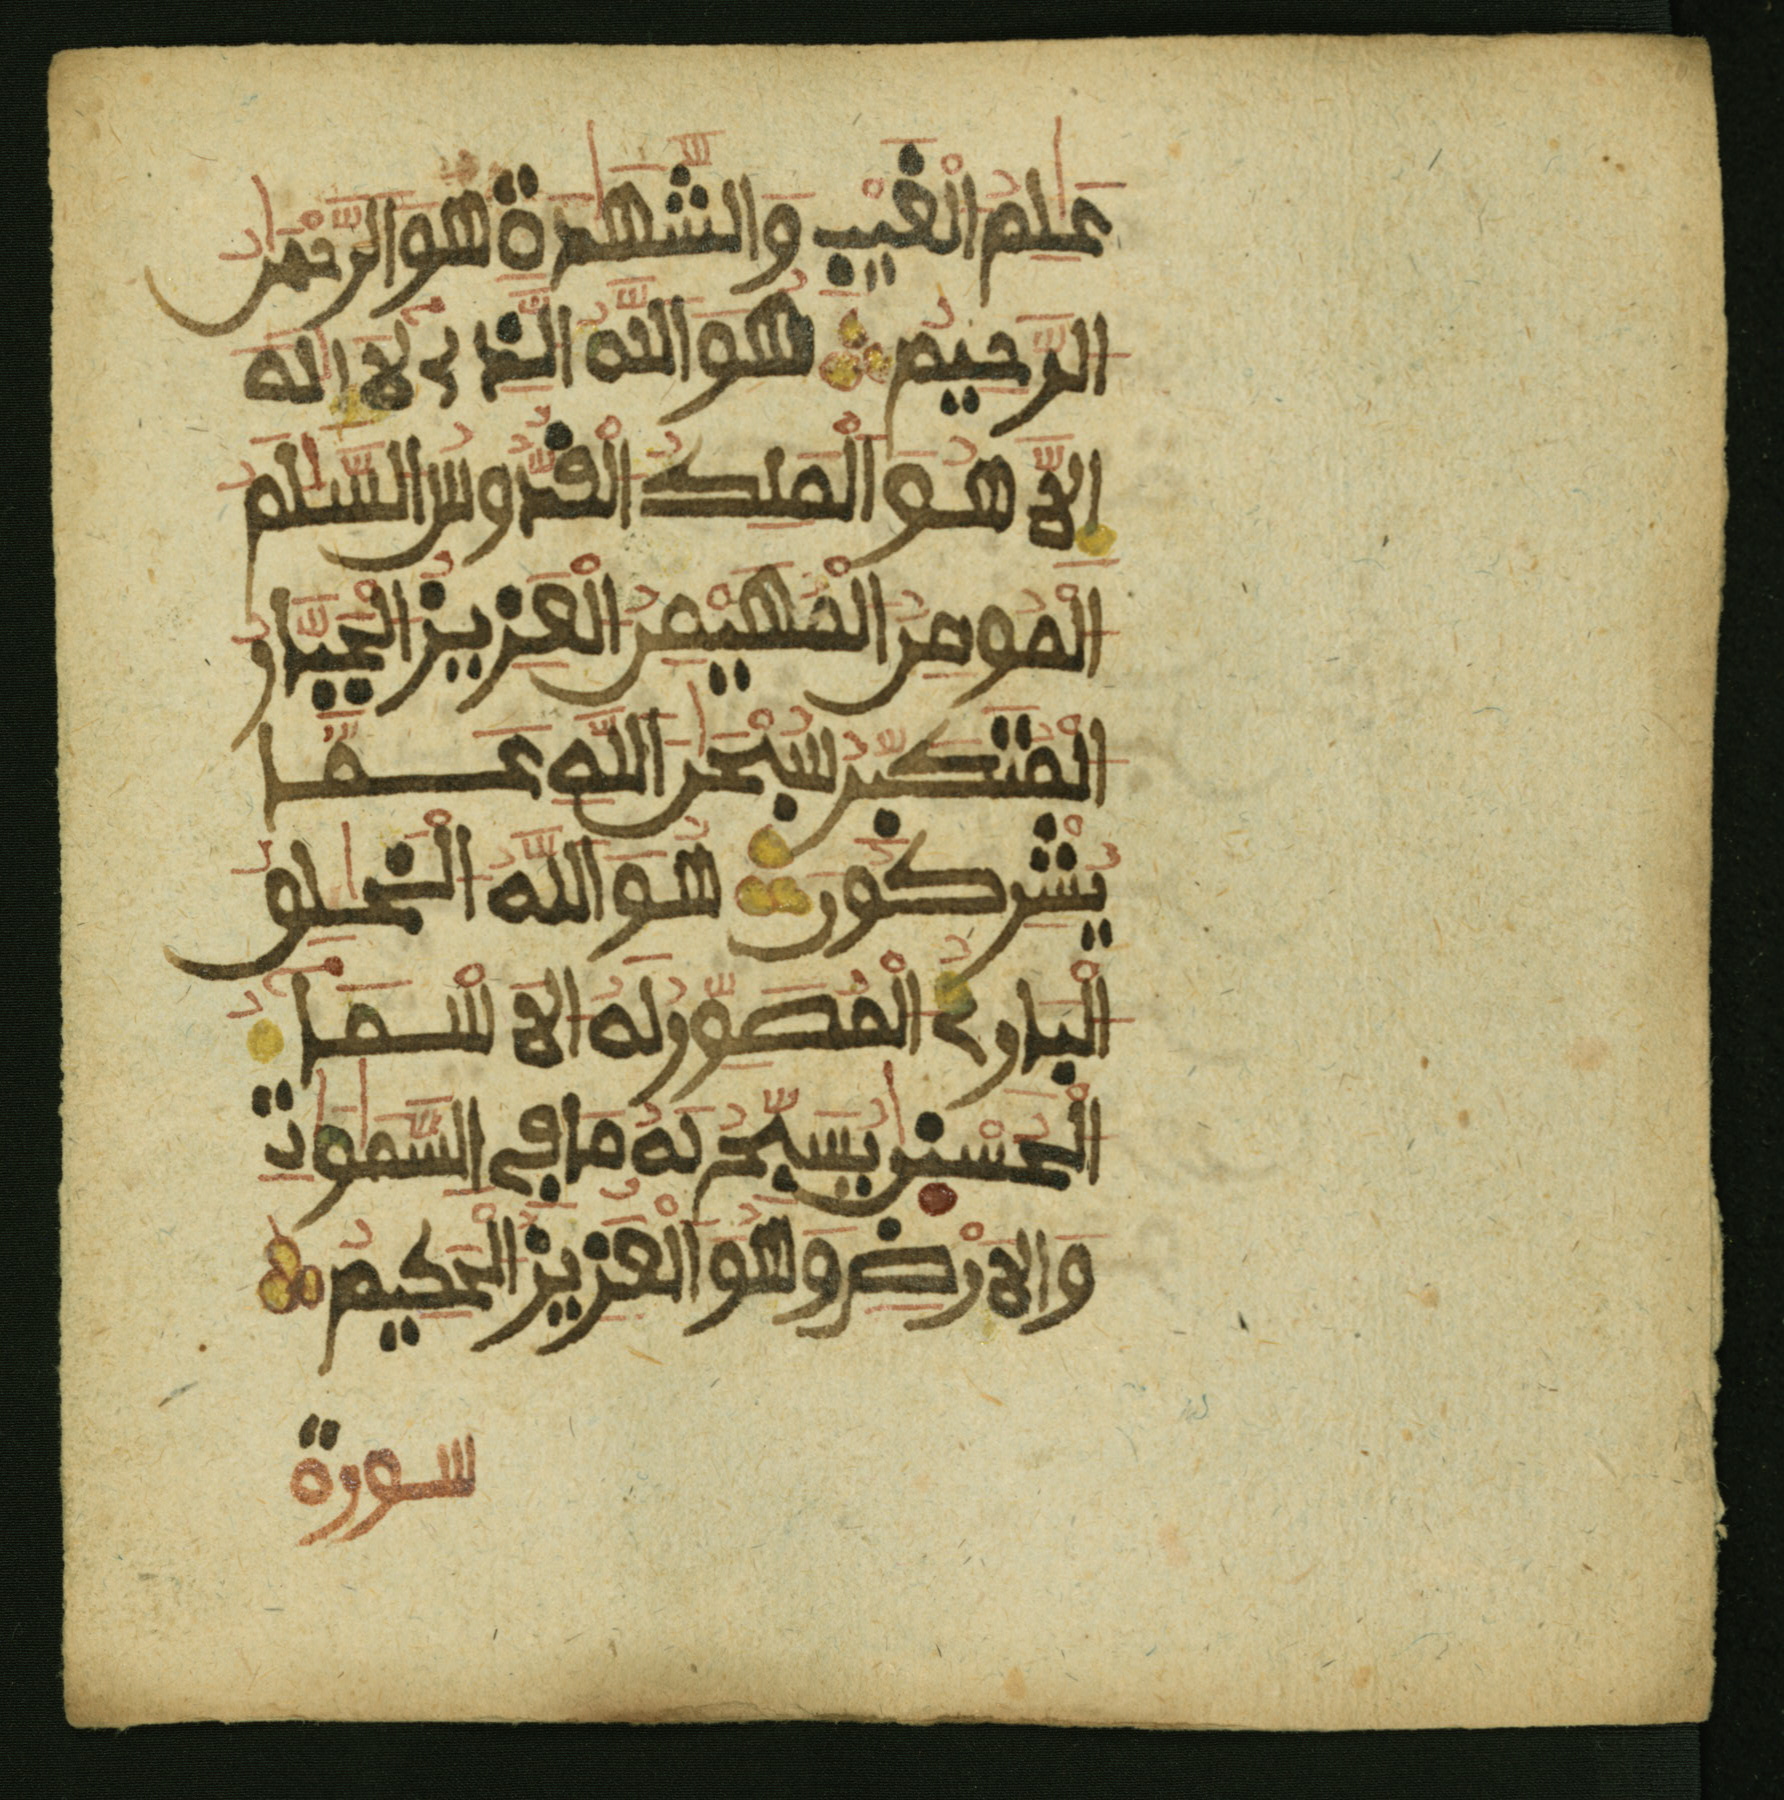 عَٰلِمُ الْغَيْبِ وَالشَّهَٰدَةِ هُوَ الرَّحْمَٰنُ
الرَّحِيمُ هُوَ اللَّهُ الَّذِي لَآ إِلَٰهَ
إِلَّا هُوَ الْمَلِكُ الْقُدُّوسُ السَّلَٰمُ
الْمُومِنُ الْمُهَيْمِنُ الْعَزِيزُ الْجَبَّارُ
الْمُتَكَبِّرُ سُبْحَٰنَ اللَّهِ عَمَّا
يُشْرِكُونَ هُوَ اللَّهُ الْخَٰلِقُ
الْبَارِئُ الْمُصَوِّرُ لَهُ الَاسْمَآءُ
الْحُسْنَىٰ يُسَبِّحُ لَهُ مَا فِي السَّمَٰوَٰتِ
وَالَارْضِ وَهُوَ الْعَزِيزُ الْحَكِيمُ
سورة